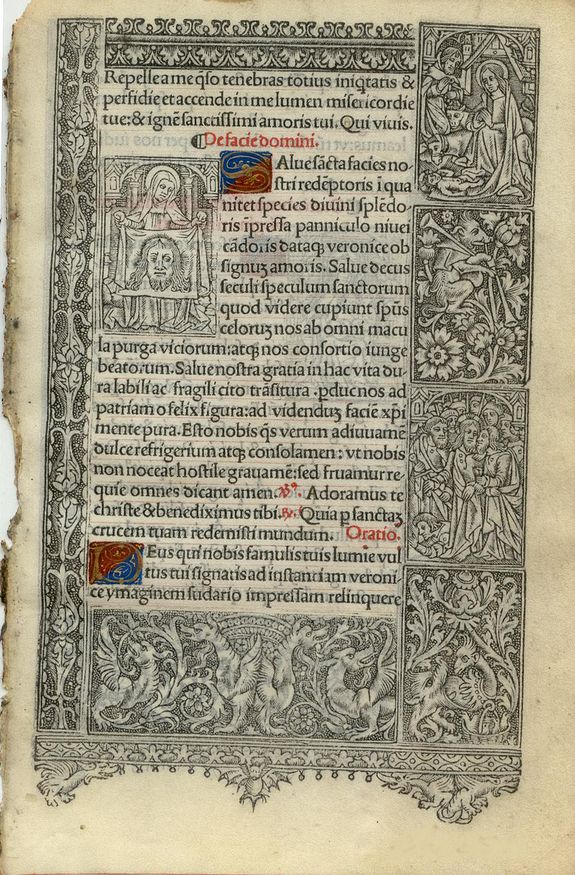 Repelle a me q̃so tenebras totius iniq̃tatis &
perfidie et accende in me lumen misericordie
tue: & ignẽ sanctissimi amoris tui. Qui viuis.
¶ De facie domini.
Salue sãcta facies no
stri redẽptoris ĩ qua
nitet species diuini splẽdo
ris ĩpressa panniculo niuei
cãdoris dataqꝫ veronice ob
signuꝫ amoris. Salue decus
seculi speculum sanctorum
quod videre cupiunt spũs
celoruꝫ nos ab omni macu
la purga viciorum: atqꝫ nos consortio iunge
beatorum. Salue nostra gratia in hac vita du
ra labili ac fragili cito trãsitura .pduc nos ad
patriam o felix figura: ad videnduꝫ faciẽ xp̃i
mente pura. Esto nobis q̃s verum adiuuamẽ
dulce refrigerium atqꝫ consolamen: vt nobis
non noceat hostile grauamẽ: sed fruamur re
quie omnes dicant amen. ꝟ. Adoramus te
christe & benediximus tibi. ℟. Quia p sanctaꝫ
crucem tuam redemisti mundum. Oratio.
Deus qui nobis famulis tuis lumĩe vul
tus tui signatis ad instantiam veroni
ce ymaginem sudario impressam relinquere